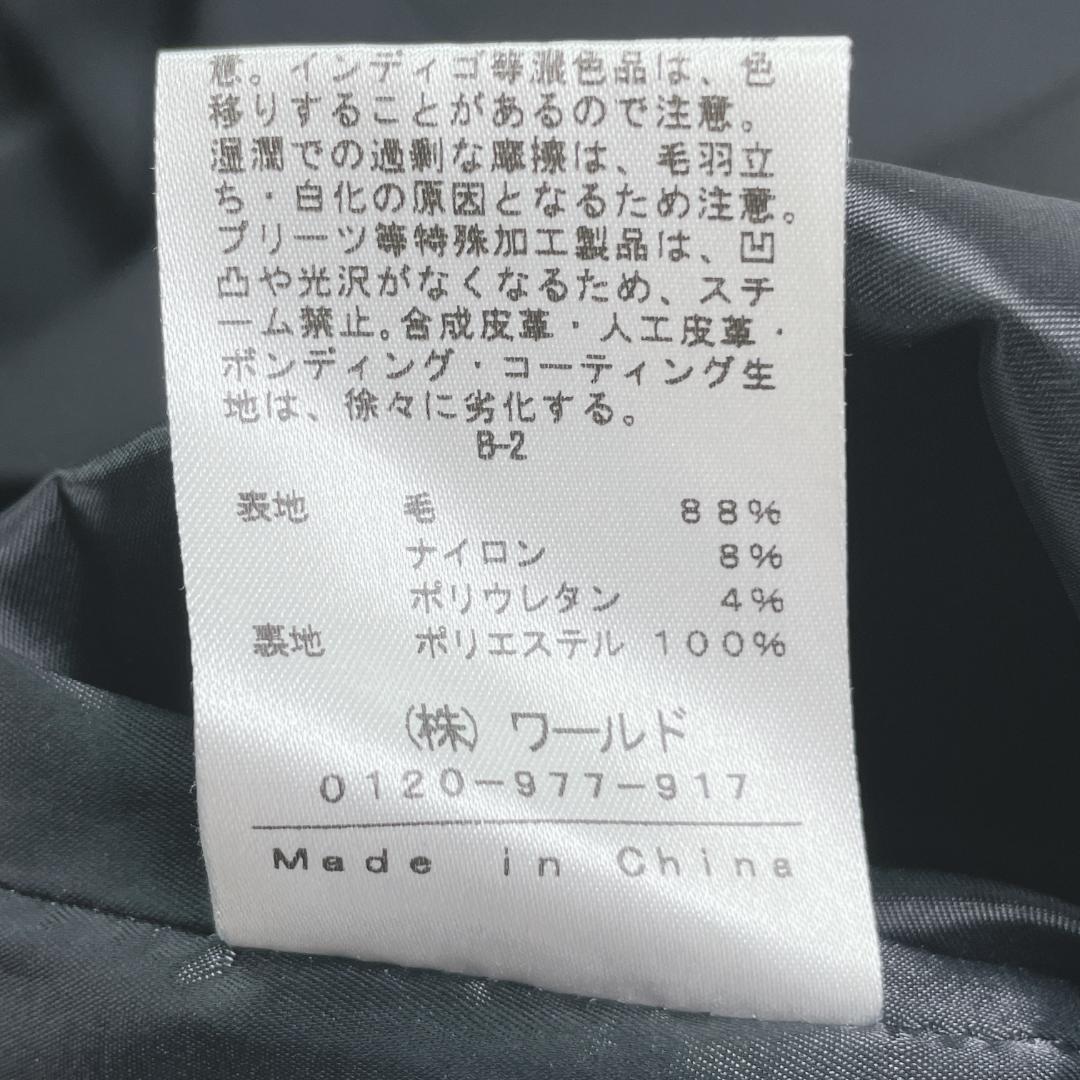 意。インディゴ等濃色品は、色
移りすることがあるので注意。
湿潤での過剰な摩擦は、毛羽立
ち・白化の原因となるため注意。
プリーツ等特殊加工製品は、凹
凸や光沢がなくなるため、スチ
ーム禁止。合成皮革・人工皮革・
ボンディング・コーティング生
地は、徐々に劣化する。
B-2
表地 毛 88%
ナイロン 8%
ポリウレタン 4%
裏地 ポリエステル 100%
(株) ワールド
0120-977-917
Made in China